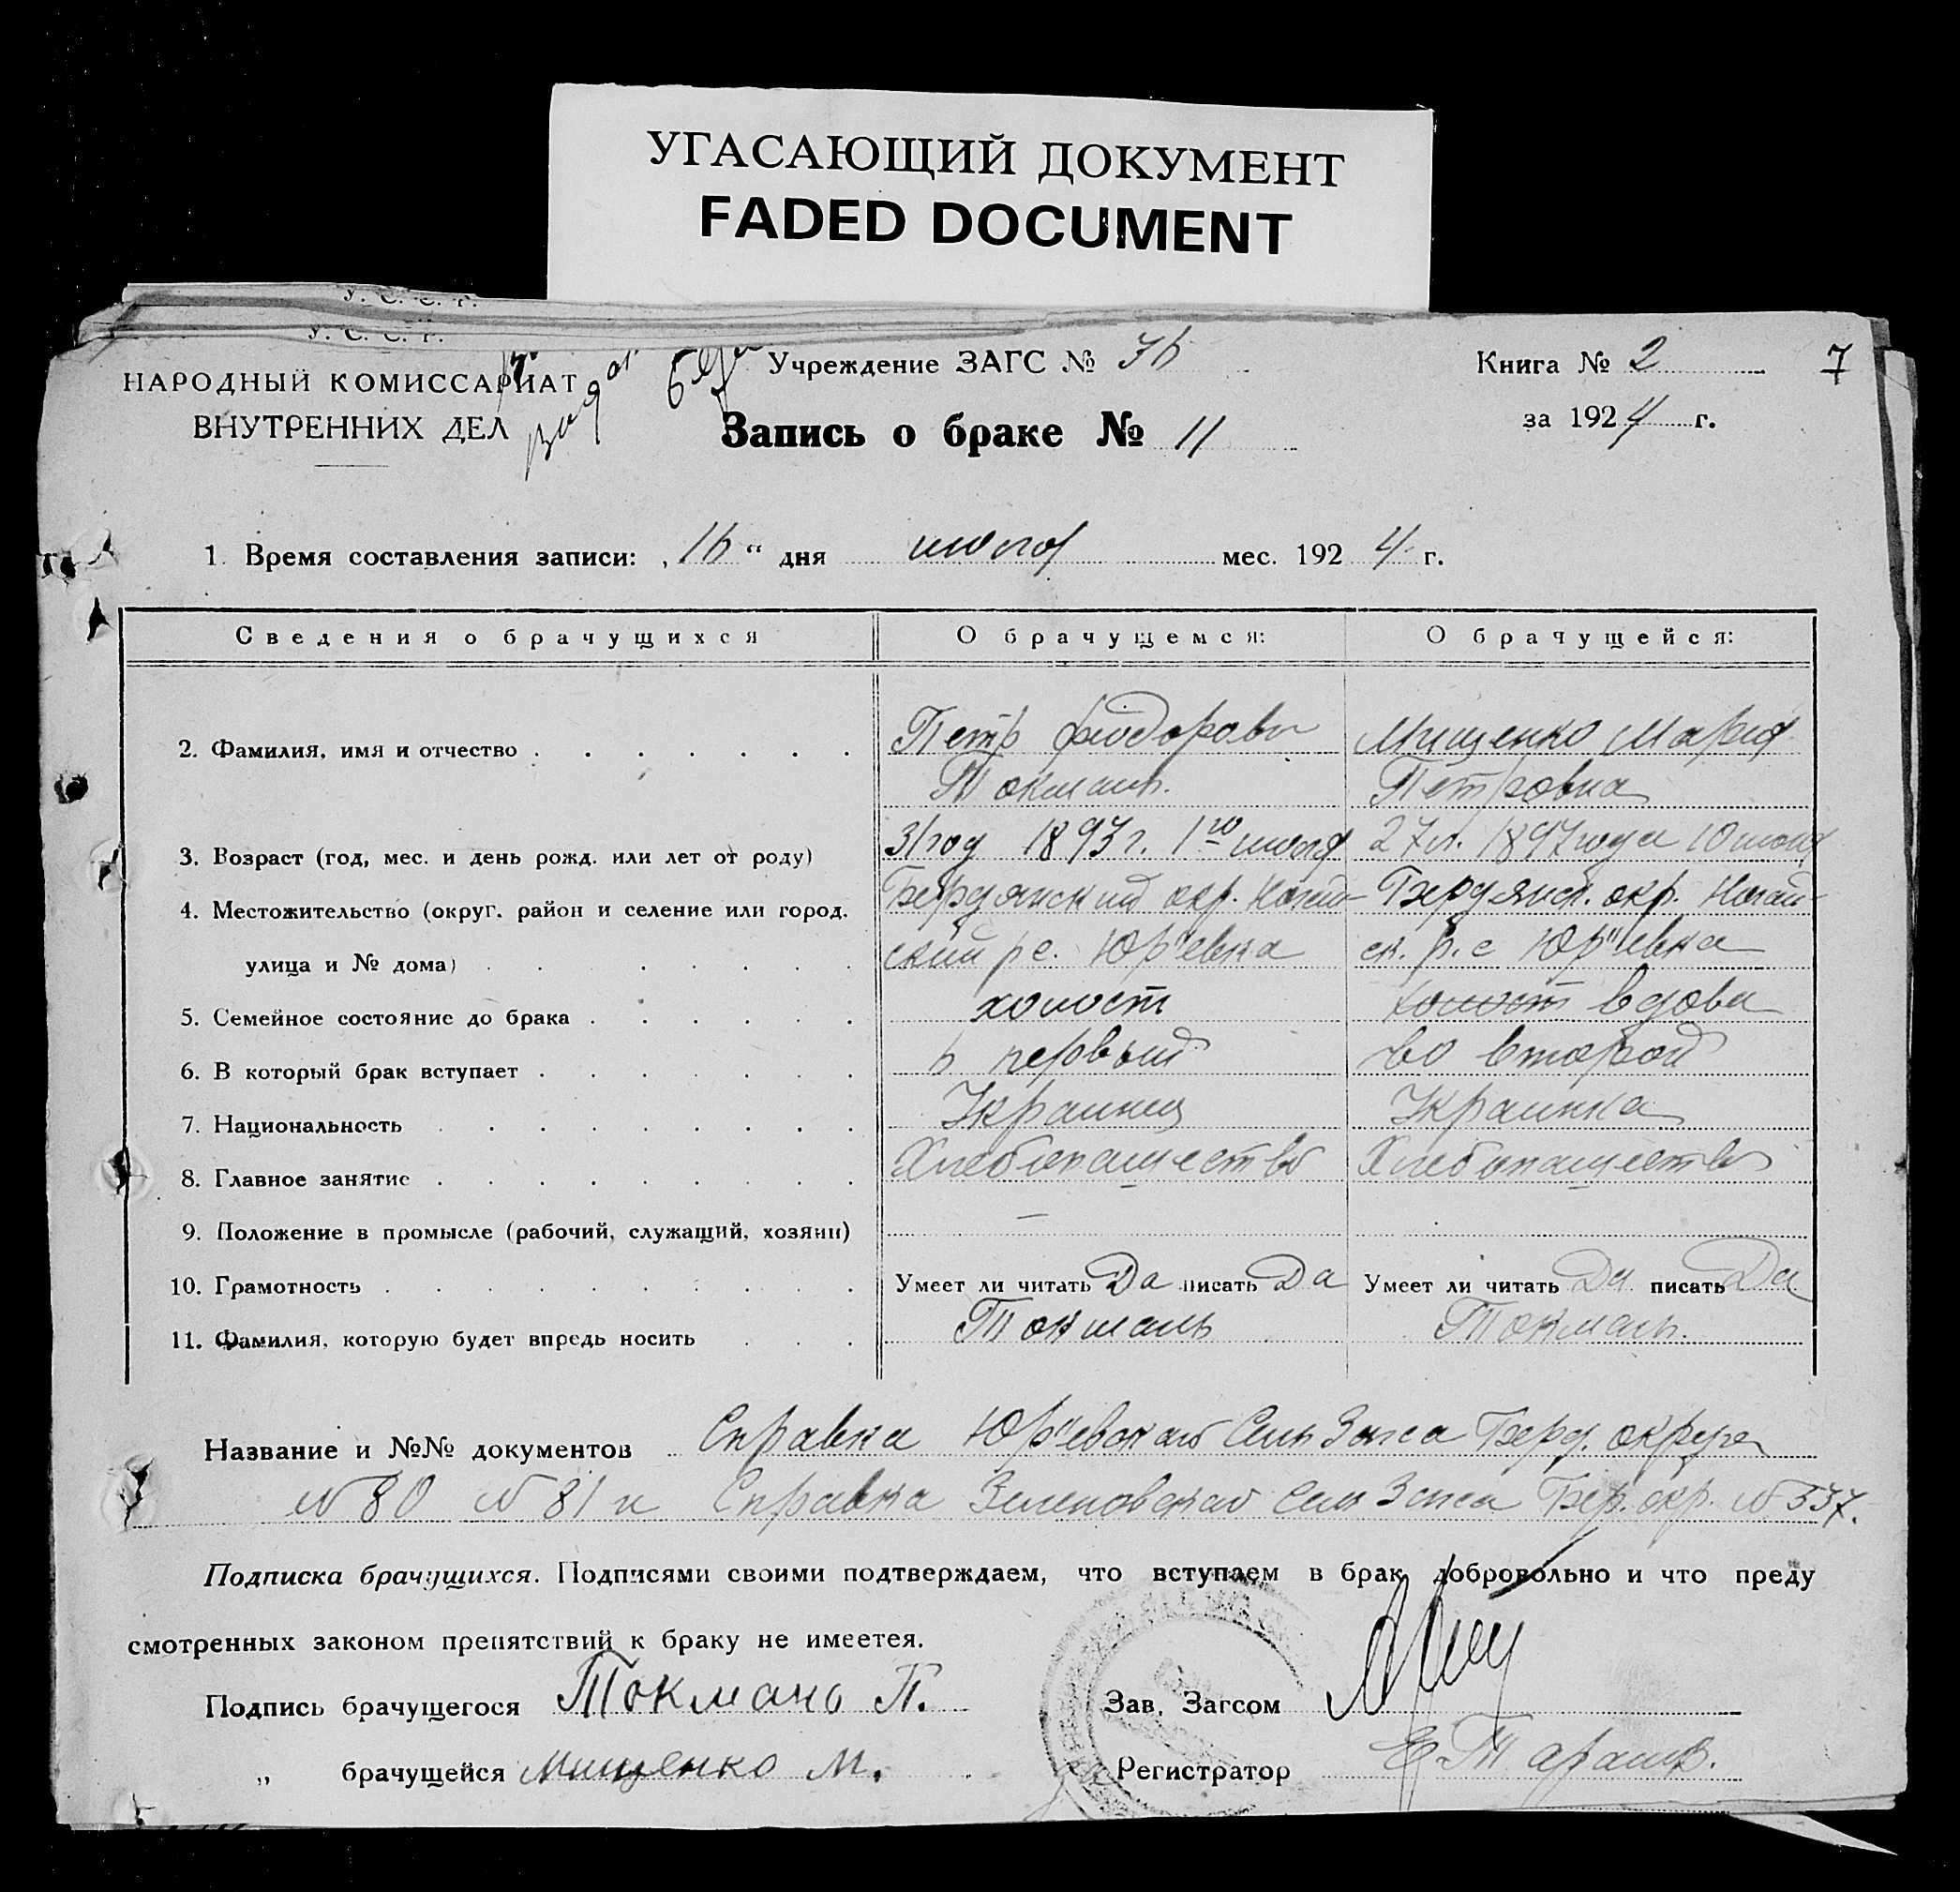 УГАСАЮЩИЙ ДОКУМЕНТ
FADED DOCUMENT
У. С. С. Р.
У. С. С. Р.
НАРОДНЫЙ КОМИССАРИАТ
ВНУТРЕННИХ ДЕЛ
Учреждение ЗАГС № 76
Книга № 2
7
за 1924 г.
Запись о браке № 11
1. Время составления записи: „16“ дня июля мес. 1924 г.
Сведения о брачущихся О брачущемся: О брачущейся:
2. Фамилия, имя и отчество Петр Феодорови Мищенко Мария
Токмань. Петровна
3. Возраст (год, мес. и день рожд. или лет от роду) 31 год 1893 г. 1го июля 27 л. 1897 года 10 июля
4. Местожительство (округ. район и селение или город. Бердянский окр. Ногай- Бердянск. окр. Ногай-
улица и № дома) ский р с. Юр"евка ск. р. с Юр"евка
5. Семейное состояние до брака холост холост вдова
6. В который брак вступает в первый во второй
7. Национальность Украинец Украинка
8. Главное занятие Хлебопашество Хлебопашество
9. Положение в промысле (рабочий, служащий, хозяин) —
10. Грамотность Умеет ли читать Да писать Да Умеет ли читать Да писать Да
11. Фамилия, которую будет впредь носить Токмань Токмань.
Название и №№ документов Справка Юр"евскаго СельЗагса Берд. округа
№ 80 № 81 и Справка Зеленовскаго Сель Загса Бер. окр. № 337.
Подписка брачущихся. Подписями своими подтверждаем, что вступаем в брак добровольно и что преду
смотренных законом препятствий к браку не имеется.
Подпись брачущегося Токмань П. Зав. Загсом
„ брачущейся Мищенко М. Регистратор